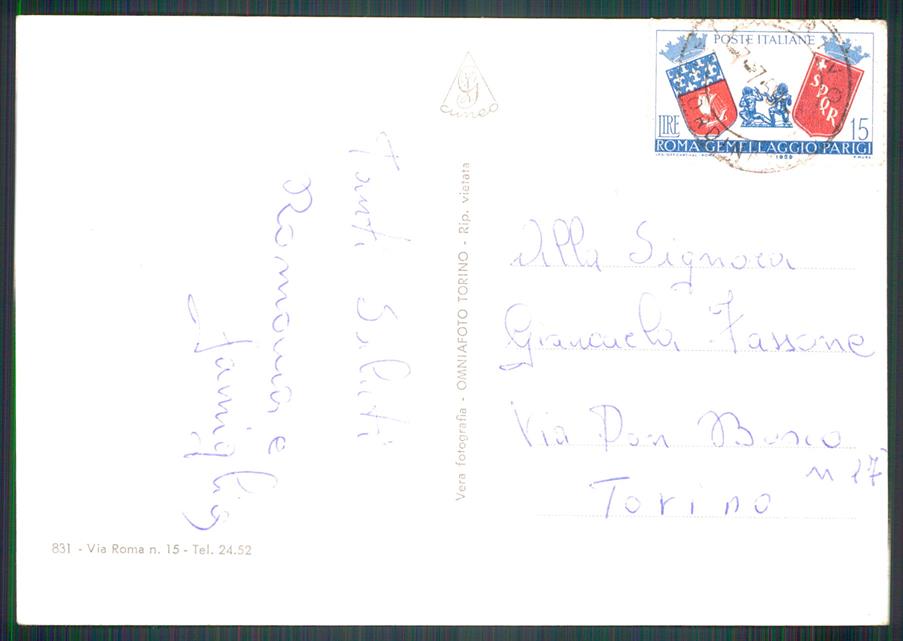 Cuneo
Tanti Saluti
Romana e
famiglia
831 - Via Roma n. 15 - Tel. 24.52
Vera fotografia - OMNIAFOTO TORINO - Rip. vietata
POSTE ITALIANE
SPQR
LIRE
15
ROMA GEMELLAGGIO PARIGI
1959
Alla Signora
Giancarla Fassone
Via Don Bosco
n 17
Torino